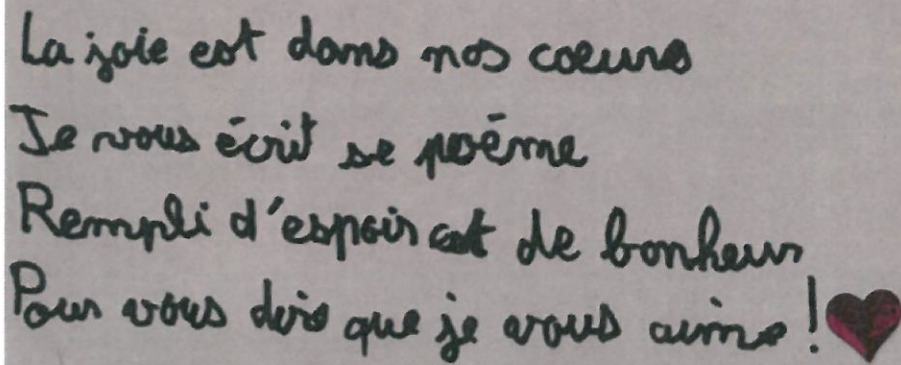 La joie est dans nos coeurs
Je vous écrit se poème
Rempli d'espoir et de bonheur
Pour vous dire que je vous aime !